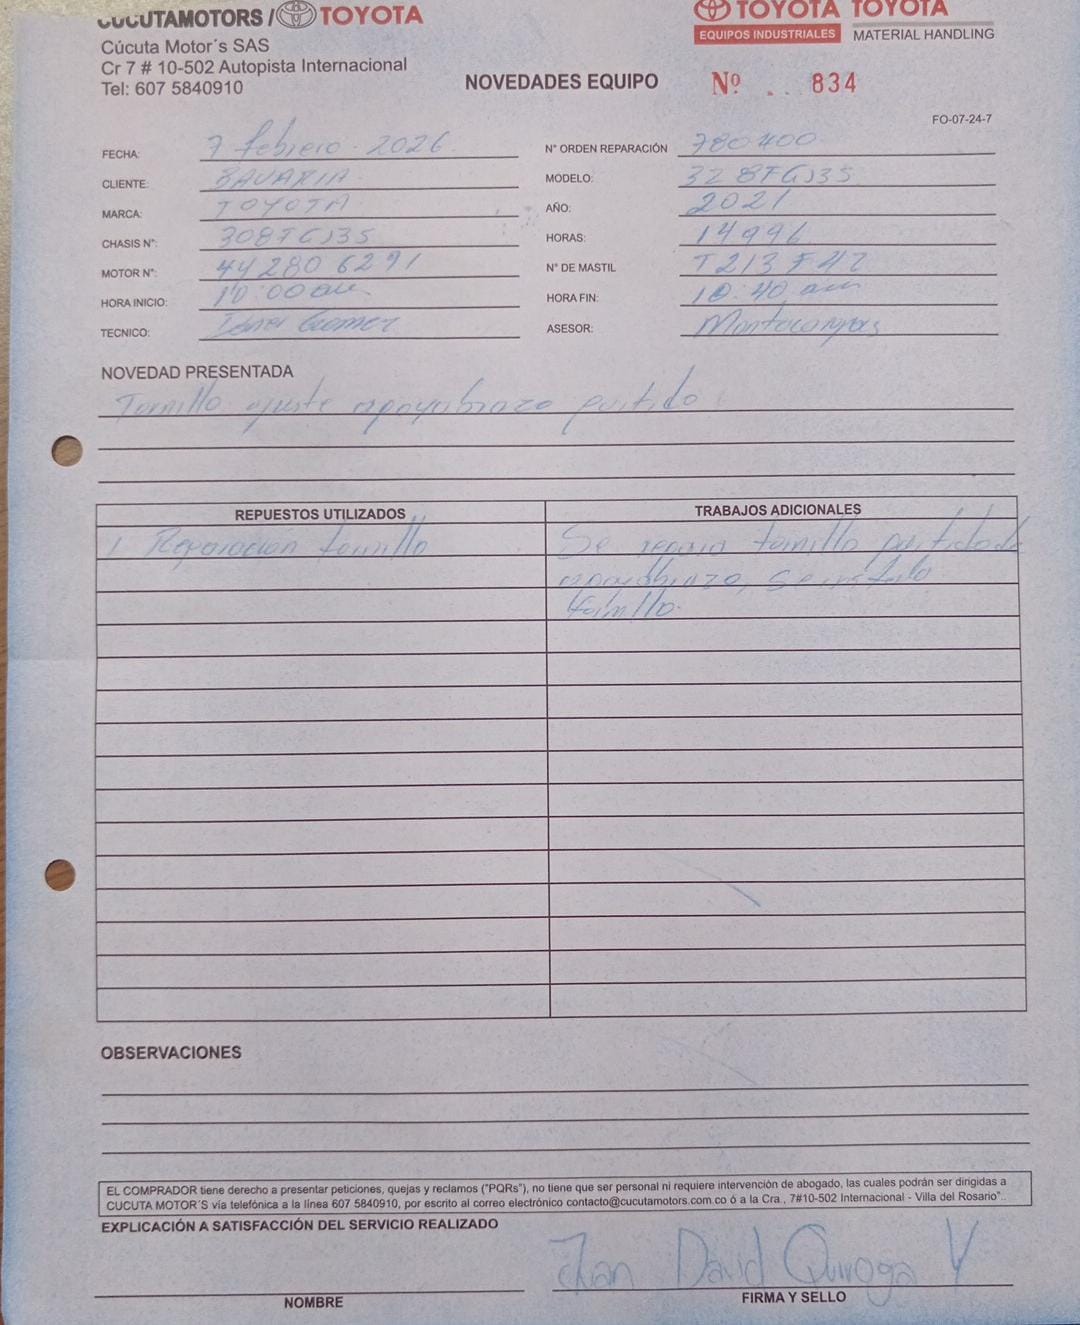 CUCUTAMOTORS / TOYOTA
TOYOTA TOYOTA
EQUIPOS INDUSTRIALES MATERIAL HANDLING
Cúcuta Motor´s SAS
Cr 7 # 10-502 Autopista Internacional
Tel: 607 5840910
NOVEDADES EQUIPO Nº 834
FO-07-24-7
FECHA: 7 febrero. 2026
N° ORDEN REPARACIÓN 780400
CLIENTE: BAVARIA
MODELO: 328FGJ35
MARCA: TOYOTA
AÑO: 2021
CHASIS N°: 308FGJ35
HORAS: 14996
MOTOR N°: 442806291
N° DE MASTIL T213F47
HORA INICIO: 10:00 am
HORA FIN: 10:40 am
TECNICO: Gomez
ASESOR: Montacargas
NOVEDAD PRESENTADA
Tornillo ajuste apoyabrazo partido
REPUESTOS UTILIZADOS TRABAJOS ADICIONALES
1 Reparacion tornillo
Se repara tornillo partido de
apoyabrazo, se instala
tornillo.
OBSERVACIONES
EL COMPRADOR tiene derecho a presentar peticiones, quejas y reclamos ("PQRs"), no tiene que ser personal ni requiere intervención de abogado, las cuales podrán ser dirigidas a
CUCUTA MOTOR´S vía telefónica a la línea 607 5840910, por escrito al correo electrónico contacto@cucutamotors.com.co ó a la Cra., 7#10-502 Internacional - Villa del Rosario"..
EXPLICACIÓN A SATISFACCIÓN DEL SERVICIO REALIZADO
Jhan David Quiroga V
NOMBRE
FIRMA Y SELLO